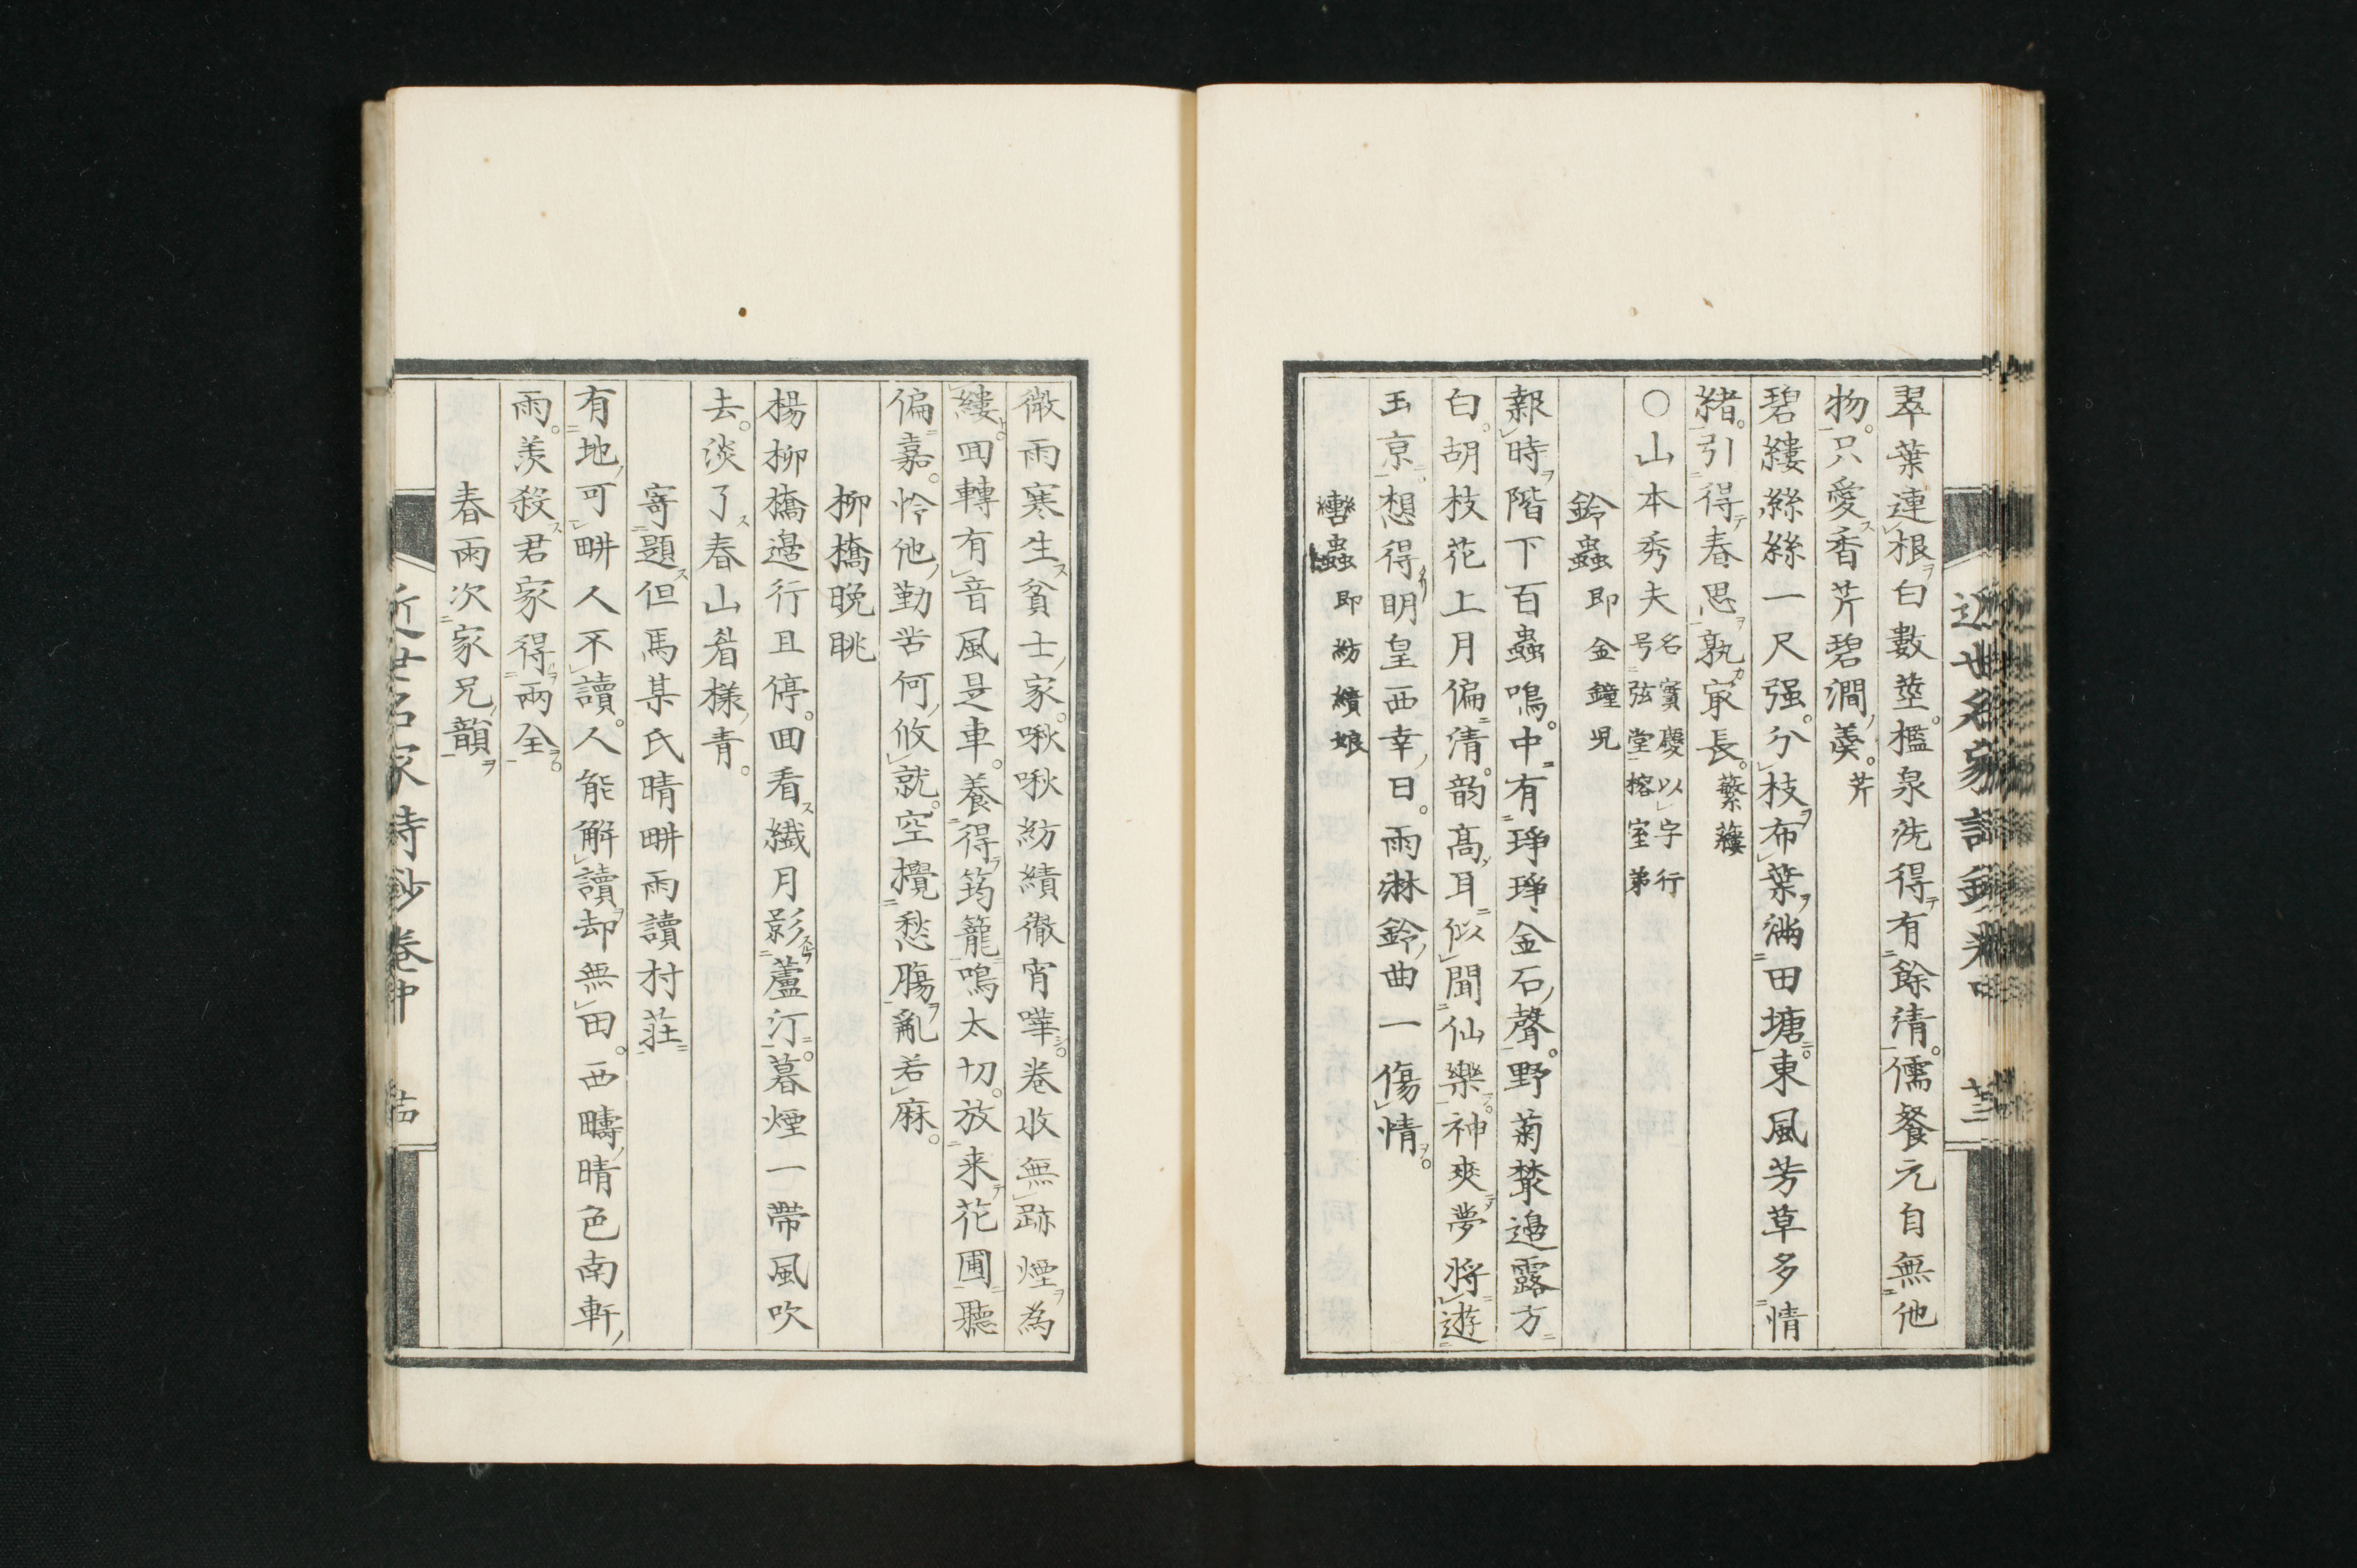 翠葉連根白數莖檻泉洗得有餘清儒餐元自無他
物只愛香芹碧澗羹芹
碧縷絲絲一尺强分枝布葉滿田塘東風芳草多情
緒引得春思孰最長蘩蔞
○山本秀夫名實慶以字行
号弦堂榕室弟
鈴蟲即金鐘児
報時階下百蟲鳴中有琤琤金石聲野菊叢邉露方
白胡枝花上月偏清韵髙耳似聞仙樂神爽夢將遊
玉京想得明皇西幸日雨淋鈴曲一傷情
轡蟲即紡績娘
微雨寒生貧士家啾啾紡績徹宵嘩卷收無跡煙為
縷囬轉有音風是車養得筠籠鳴太切放来花圃聽
偏嘉怜他勤苦何攸就空攪愁膓亂若麻
柳橋晩眺
楊柳橋邉行且停囬看纎月影蘆汀暮煙一帶風吹
去淡了春山眉樣青
寄題但馬某氏晴畊雨讀村莊
有地可畊人不讀人能解讀却無田西疇晴色南軒
雨羡殺君家得兩全
春雨次家兄韻
近世名家詩鈔卷中